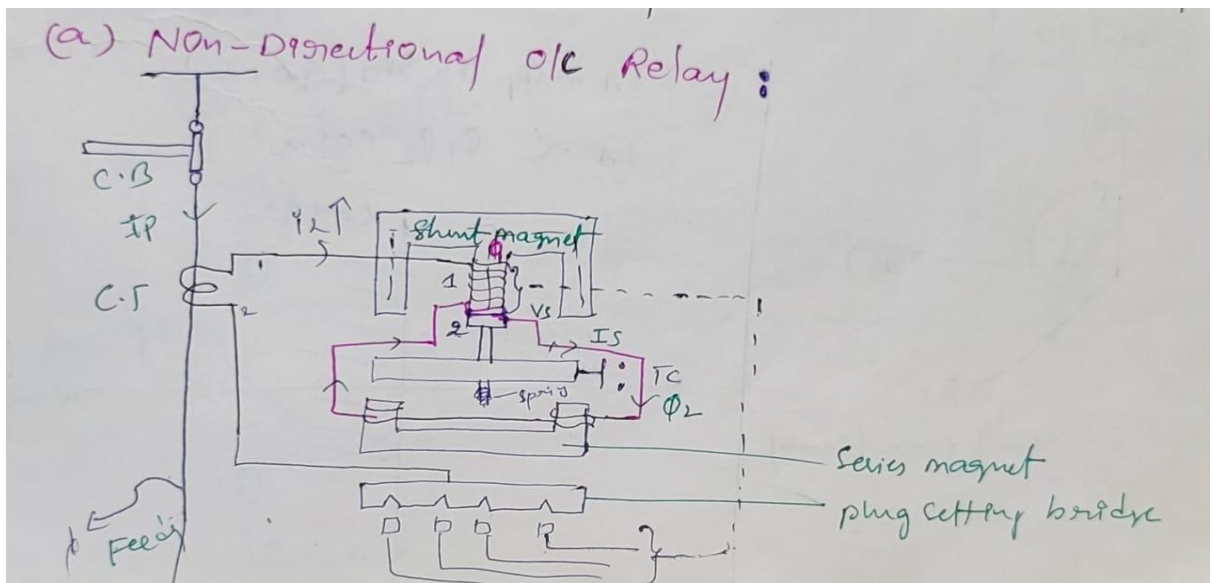 (a) Non-Directional O/C Relay :
C.B
IP
C.T
1
2
i2↑
Shunt magnet
φ
1
2
VS
IS
TC
φ2
Series magnet
plug setting bridge